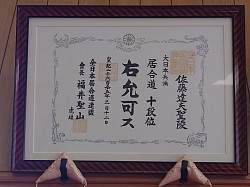 佐藤達夫聖殿
大日本兵法
居合道 十段位
右允可ス
皇紀二千六百五十五年三月十二日
全日本居合道連盟
會長 福井聖山